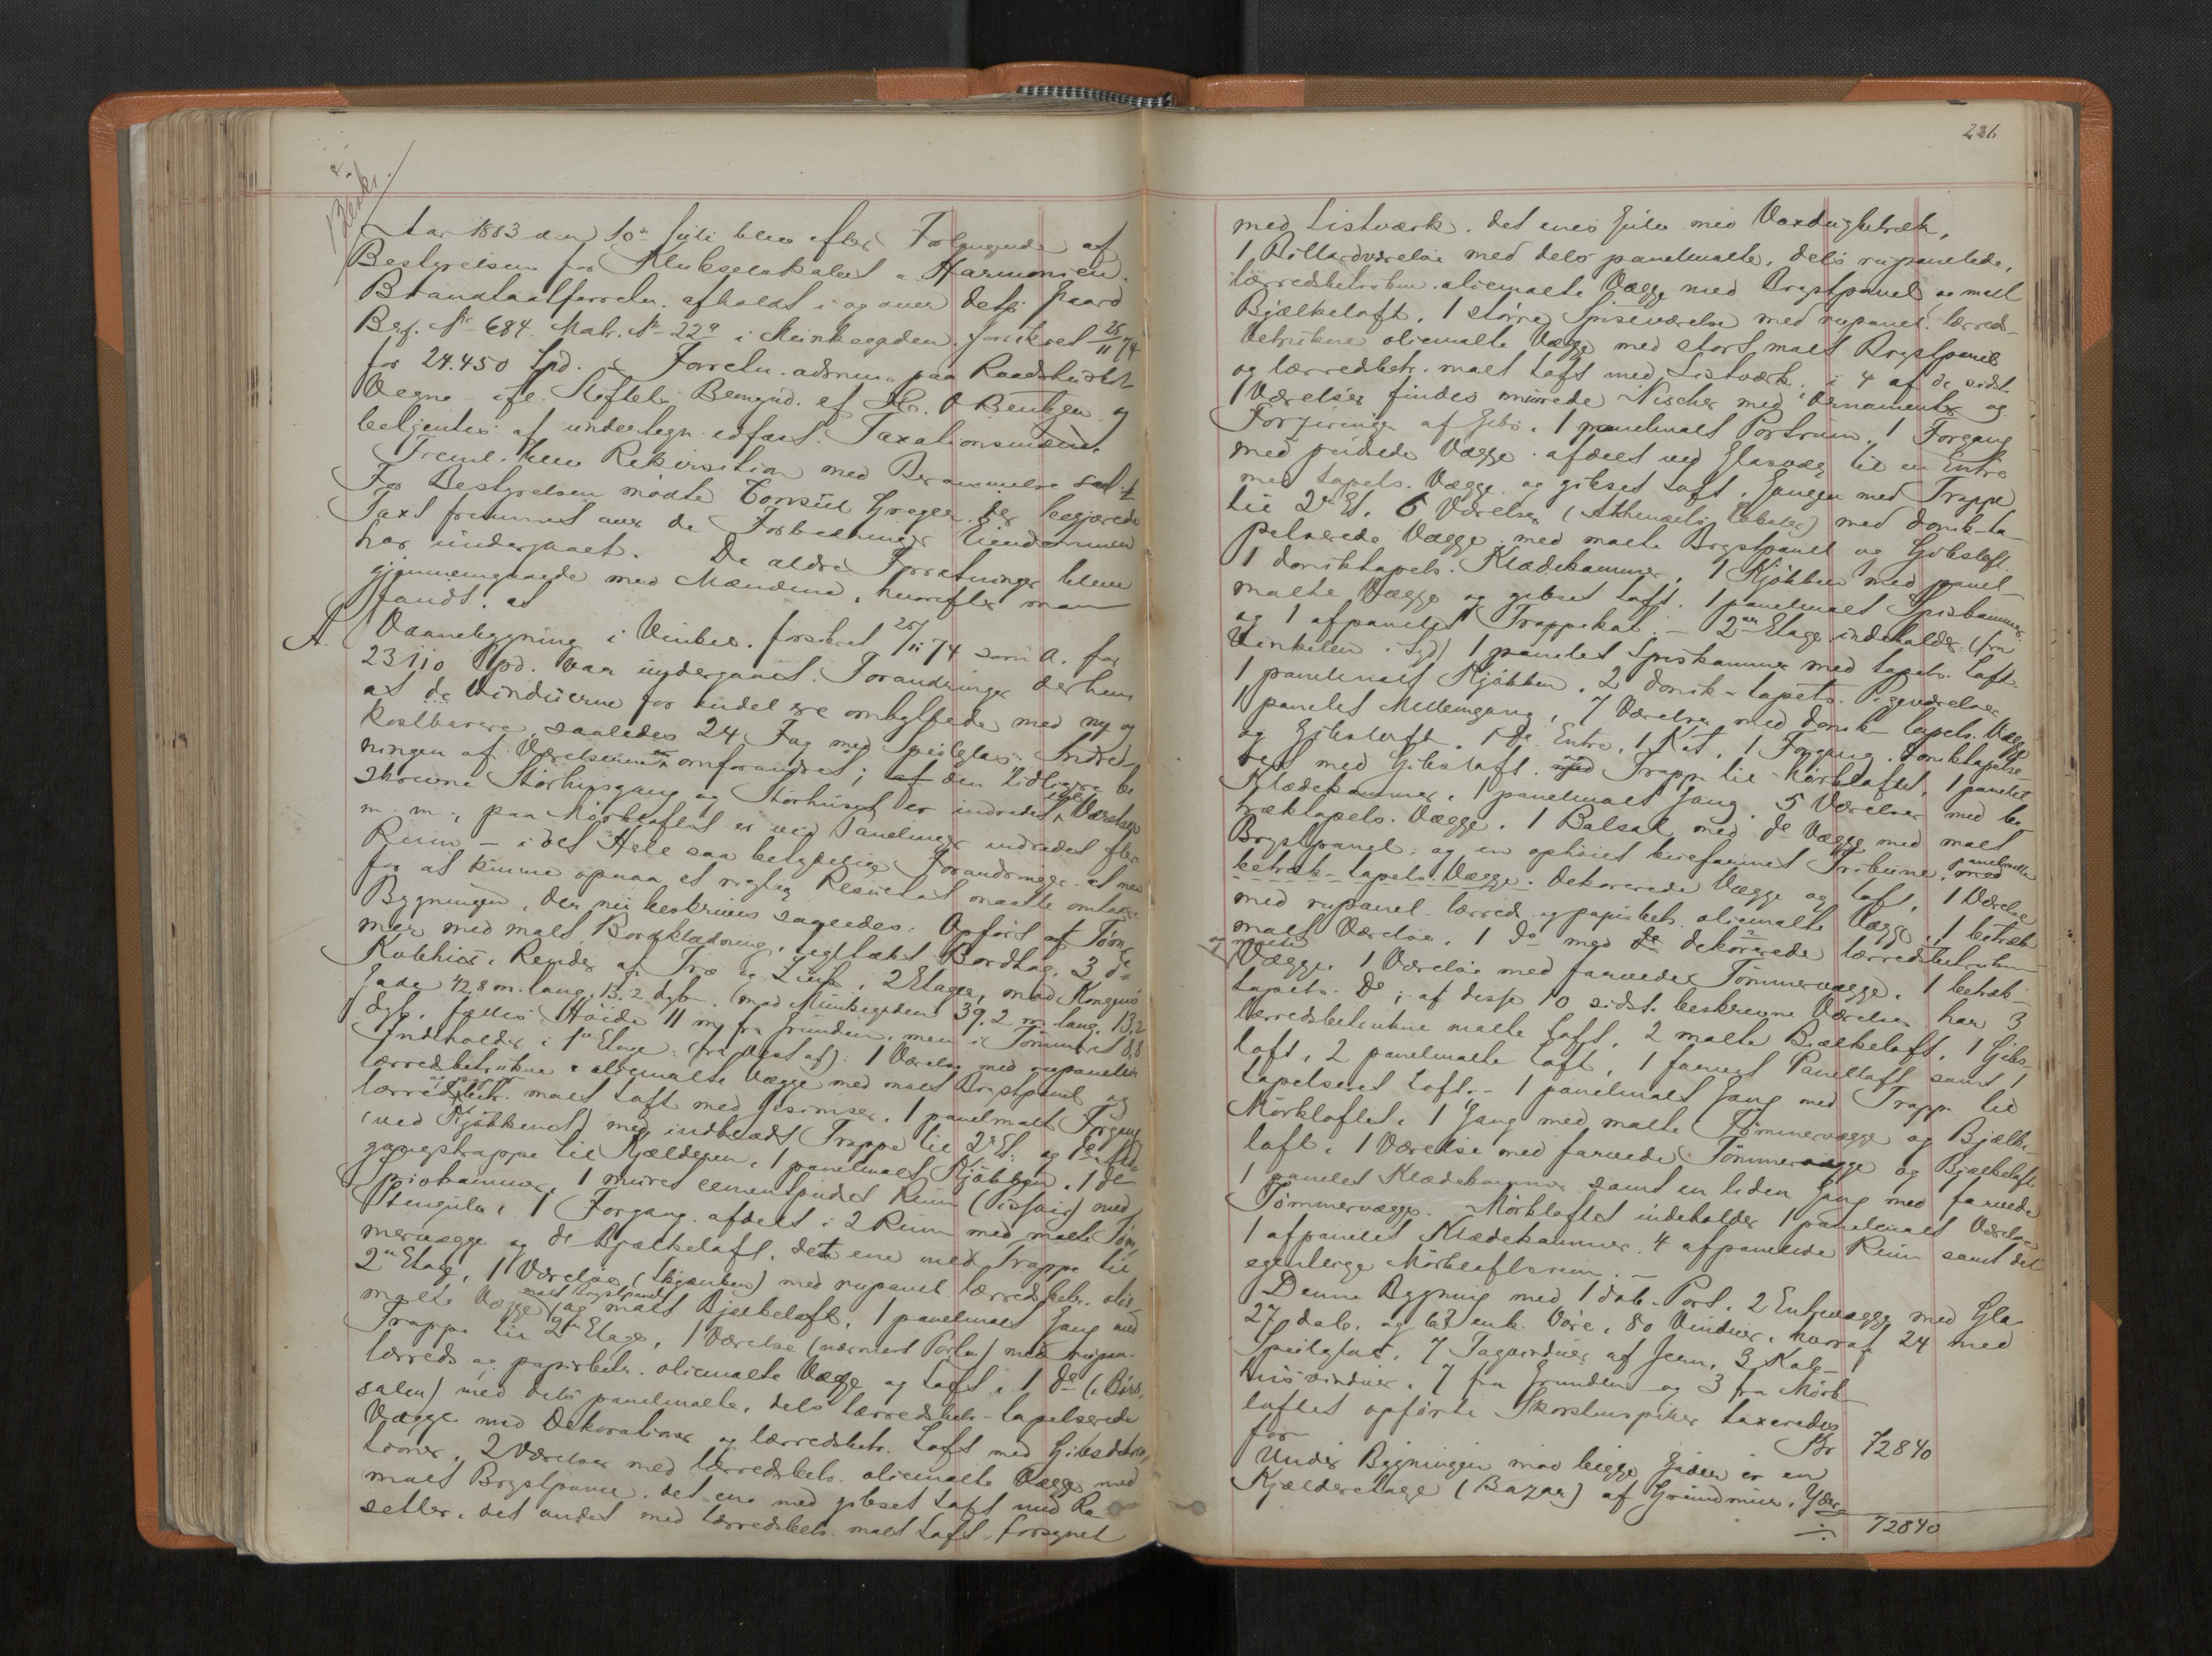 Beskr.
Aar 1883 den 10de Juli blev efter Forlangende af
Bestyrelsen for Klubselskabet "Harmonien"
Brandtaxtforretn. afholdt i og over dets Gaard
Brf. No 684 Matr. No 22a i Munkegaden, forsikret 25/11 74
for 24.450 Spd. Forretn. adm. paa Raadstuens
Vegne ifl. Stiftets Bemynd. af O. Bentzen og
betjentes af undertegn. edfæst. Taxationsmænd.
Freml. blev Rekvisition med Berammelse
For Bestyrelsen mødte Consul Greger der begjærede
Taxt fremmet over de Forbedringer Eiendommen
har undergaaet. De ældre Forretninger bleve
gjennemgaaede med Mændene, hvorefter man
fandt, at
A. Vaanebygning i Vinkel, forsikret 25/11 74 som A. for
23110 Spd. var undergaaet Forandringer derhen
at de Vinduerne for endel ere ombyttede med ny og
kostbarere, saaledes 24 Fag med Speilglas. Indred-
ningen af Værelserne er omforandret; af den tidligere be
skrevne Storhusgang og Storhuset er indredet Værelser
m. m., paa Mørkloftet er ved Panelinger indredet flere
Rum – i det Hele saa betydelige Forandringer at man
for at kunne opnaa et rigtig Resultat maatte omtaxere
Bygningen, der nu beskrives saaledes: Opført af Tøm-
mer med malt Bordklædning, teglhækt Bordtag, 3 do
Kvisthus, Render af Træ og Zink, 2 Etager, mod Kongens
Gade 42,8 m. lang, 13,2 dyb, mod Munkegaden 39,2 m. lang, 13,2
dyb, fælles Høide 11 m. fra Grunden, men i Tømmeret 8,8
Indeholder i 1ste Etage: (fra Vest af): 1 Værelse med rupanelet
lærredsbetrukne oliemalte Vægge med malt Brystpanel og
lærredsbetr. malt Loft med Gesimser, 1 panelmalt Forgang
(ved Kjøkkenet) med indklædt Trappe til 2de Et. og do Ned-
gangstrappe til Kjælderen, 1 panelmalt Kjøkken, 1 do
Spiskammer, 1 muret cementpudset Rum (Pissoir) med
Stengulv, 1 Forgang afdelt i 2 Rum med malte Tøm-
mervægge og do Bjælkeloft, det ene med Trappe til
2den Etage, 1 Værelse (Skjænken) med rupanel. lærredsbetr. olie-
malte Vægge malt Brystpanel og malt Bjælkeloft, 1 panelmalt Gang med
Trappe til 2den Etage, 1 Værelse (nærmest Porten) med rupan.
lærreds og papirbetr. oliemalte Vægge og Loft, 1 do (Børs-
salen) med dels panelmalte, dels lærredsbetr. tapetserede
Vægge med Dekorationer og lærredsbetr. Loft med Gibsdekora-
tioner, 2 Værelser med lærredsbetr. oliemalte Vægge med
malt Brystpanel, det ene med gibset Loft med Ro-
setter, det andet med lærredsbetr. malt Loft forsynet
236
med Listværk, det ene Gulv med Voxdugbetræk,
1 Billardværelse med dels panelmalte, dels rupanelede,
lærredsbetrukne oliemalte Vægge med Brystpanel og malt
Bjælkeloft, 1 større Spiseværelse med rupanel. lærreds-
betrukne oliemalte Vægge med stort malt Brystpanel
og lærredsbetr. malt Loft med Listværk; i 4 af de sidst
Værelser findes murede Nischer med Ornamenter og
Forsiringer af Gibs, 1 panelmalt Portrum, 1 Forgang
med pudsede Vægge, afdelt ved Glasvæg til en Entre
med tapets. Vægge og gibset Loft, Gangen med Trappe
til 2de Et. 6 Værelser (Athenæets Lokaler) med donik-ta-
petserede Vægge med malte Brystpanel og Gibsloft,
1 doniktapets. Klædekammer, 1 Kjøkken med panel-
malte Vægge og gibset Loft, 1 panelmalt Spiskammer
og 1 afpanelet Trappekot. – 2den Etage indeholder: (fra
Vinkelen i Syd) 1 panelet Spiskammer med tapets. Loft,
1 panelmalt Kjøkken, 2 donik-tapets. Pigeværelser,
1 panelet Mellemgang, 7 Værelser med donik-tapets. Vægge
og Gibsloft, 1 do Entre, 1 Kot, 1 Forgang, doniktapetse-
ret med Gibsloft med Trappe til Mørkloftet, 1 panelet
Klædekammer, 1 panelmalt Gang, 5 Værelser med be-
træktapets. Vægge, 1 Balsal med do Vægge med malt
Brystpanel, og en ophøiet Tribune, med panelmalte
betræk-tapets. Vægge. dekorerede Vægge og Loft, 1 Værelse
med rupanel. lærreds og papirbetr. oliemalte Vægge, 1 betræk
malt Værelse, 1 do med do dekorerede lærredsbetrukne
Vægge, 1 Værelse med farvede Tømmervægge, 1 betræk-
tapets. do; af disse 10 sidst beskrevne Værelser har 3
lærredsbetrukne malte Loft, 2 malte Bjælkeloft, 1 Gibs-
loft, 2 panelmalte Loft, 1 farvet Panelloft samt 1
tapetseret Loft. – 1 panelmalt Gang med Trappe til
Mørkloftet, 1 Gang med malte Tømmervægge og Bjælke-
loft, 1 Værelse med farvede Tømmervægge og Bjælkeloft
1 panelet Klædekammer samt en liden Gang med farvede
Tømmervægge. Mørkloftet indeholder 1 panelmalt Værelse
1 afpanelet Klædekammer, 4 afpanelede Rum samt det
egentlige Mørkloftsrum. –
Denne Bygning med 1 dob. Port, 2 Entrevægge med Glas
27 dob. og 63 enk. Døre, 80 Vinduer, hvoraf 24 med
Speilglas, 7 Tagvinduer af Jern, 3 Kob-
husvinduer, 7 fra Grunden og 3 fra Mørk-
loftet opførte Skorstenspiber taxeredes
for Kr 72840
Under Bygningen mod begge Gader er en
Kjælderetage (Bazar) af Grundmur, Yder-
÷ 72840